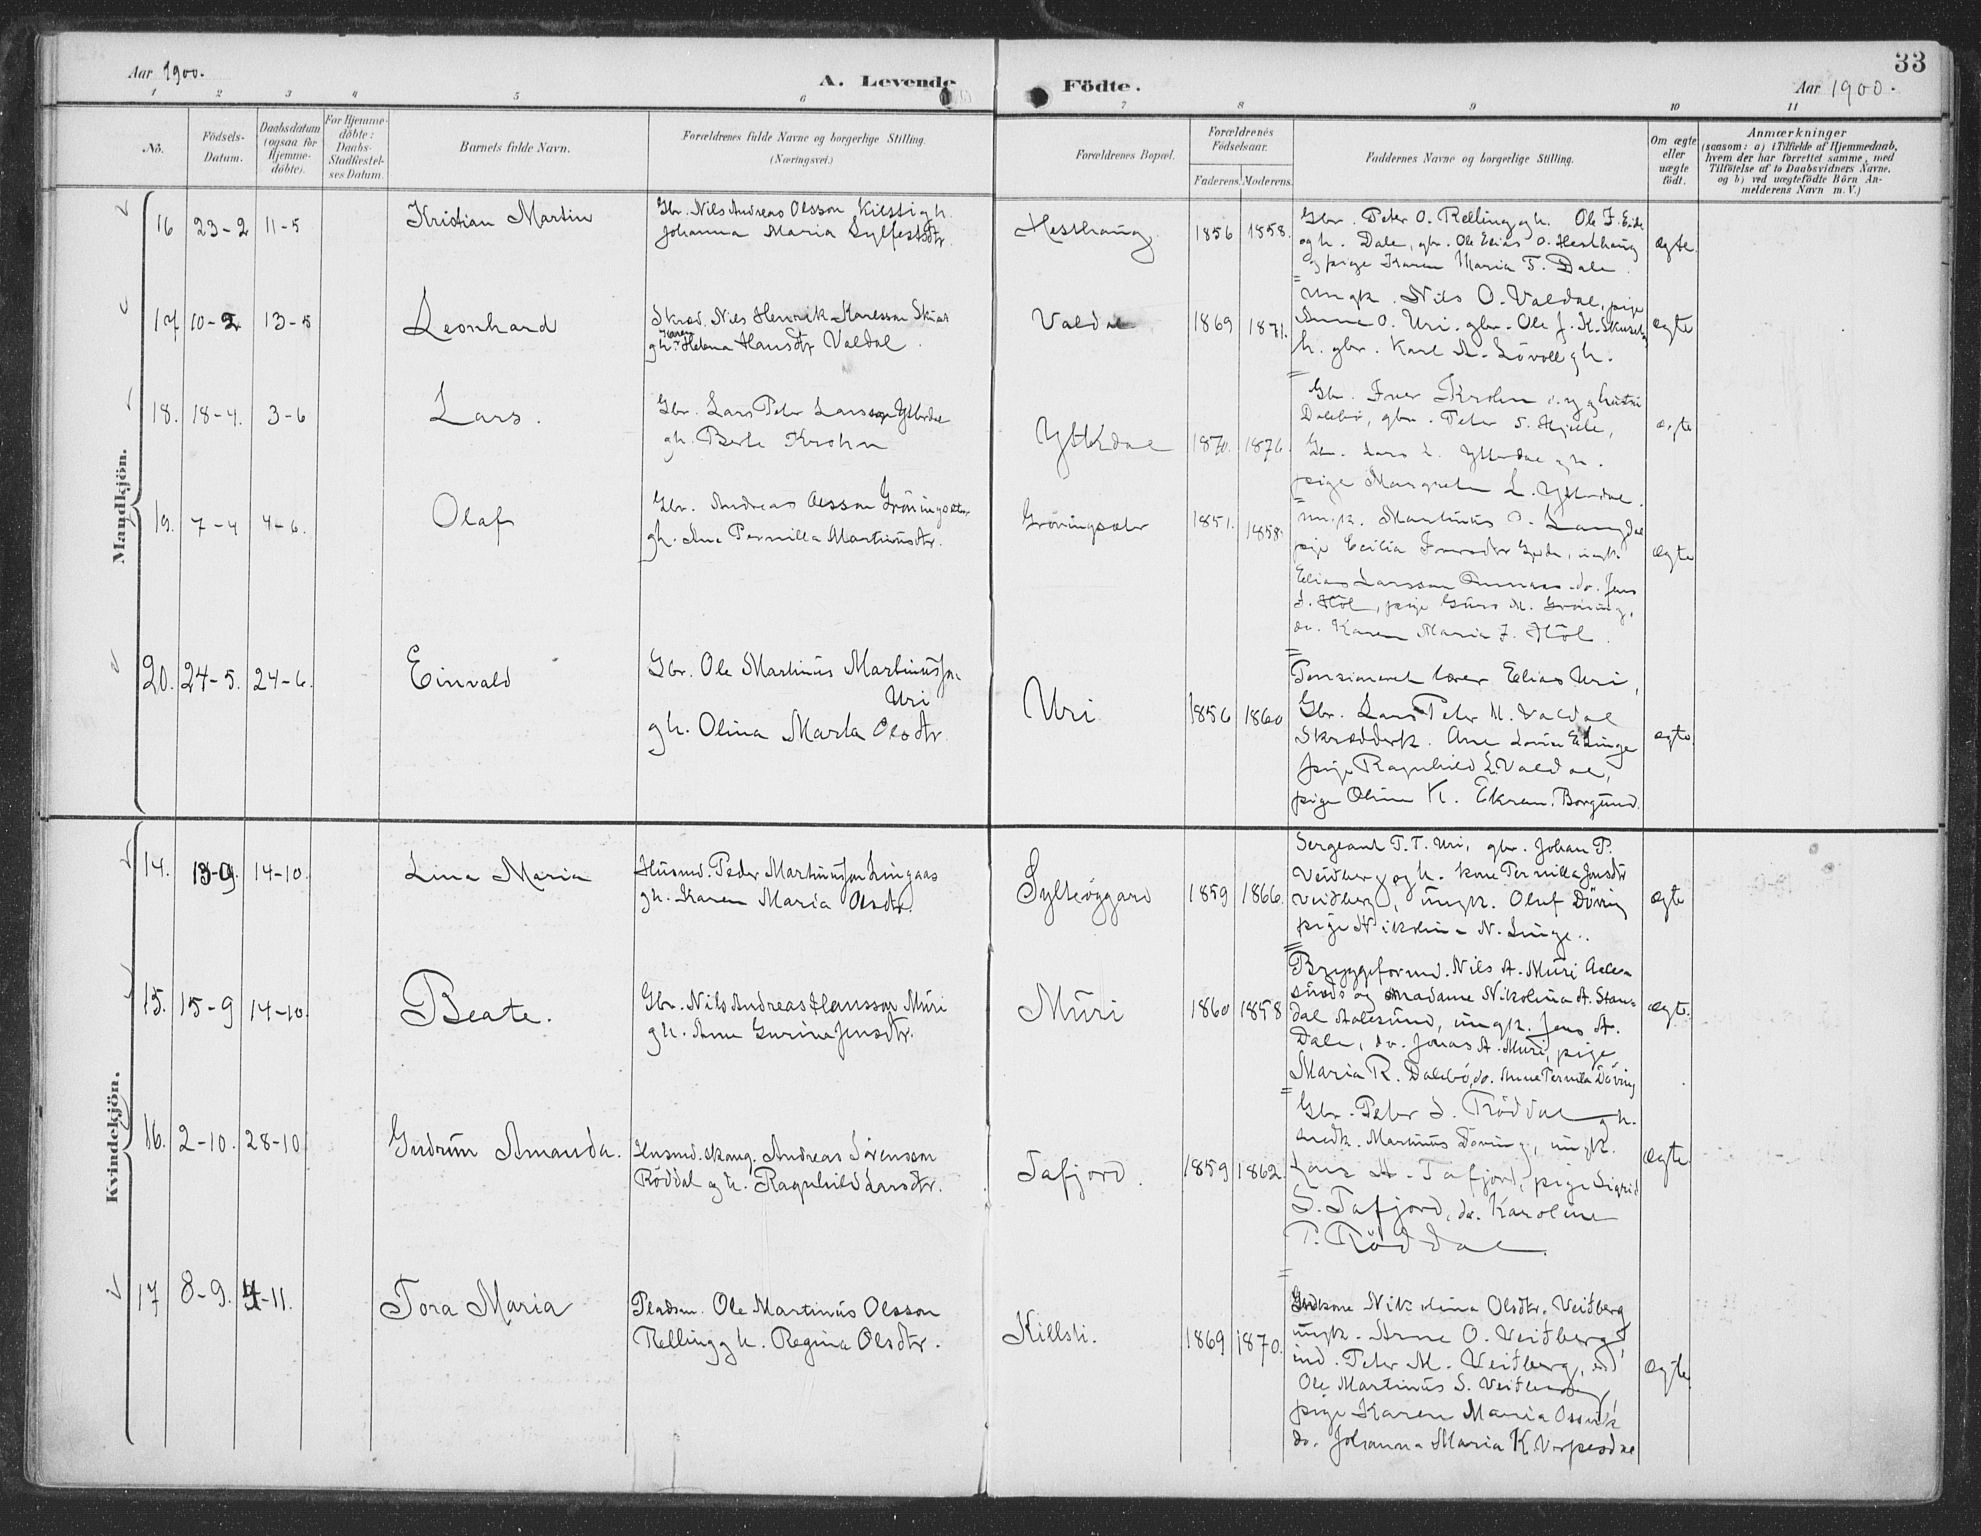 33
Aar 1900.
A. Levende
Födte.
Aar 1900.
1 2 3 4 5 6 7 8 9 10 11
No.
Födsels-
Datum.
Daabsdatum
(ogsaa for
Hjemme-
döbte).
For Hjemme-
döbte:
Daabs-
Stadfæstel-
ses Datum.
Barnets fulde Navn.
Forældrenes fulde Navne og borgerlige Stilling.
(Næringsvei.)
Forældrenes Bopæl.
Forældrenes
Födselsaar.
Faderens. Moderens.
Faddernes Navne og borgerlige Stilling.
Om ægte
eller
uægte
födt.
Anmærkninger
(saasom: a) i Tilfælde af Hjemmedaab,
hvem der har forrettet samme, med
Tilföielse af to Daabsvidners Navne,
og b) ved uægtefödte Börn An-
melderens Navn m. V.)
Mandkjön.
16 23-2 11-5
Kristian Martin
Gbr. Nils Andreas Olsson Killsti gh.
Johanna Maria Sylfestdtr.
Hesthaug.
1856 1858.
Gbr. Peter O. Relling ogh. Ole J. Eide
og h. Dale, gbr. Ole Elias O. Hesthaug
og pige Karen Maria T. Dale.
ægte.
17 10-2 13-5
Leonhard
Skræd. Nils Henrik Karlsson
Karen
gh. Helena Hansdtr Valdal.
Valdal
1869 1871.
Ungk. Nils O. Valdal, pige
Anna O. Uri, gbr. Ole J. K.
h. gbr. Karl A. Lövoll gh.
ægte
18. 18-4. 3-6
Lars.
Gbr. Lars Peter Larsson Ytterdal
gh. Berte Krohn
Ytterdal
1870. 1876.
Gbr. Iver Krohn
Dalebö, gbr. Peter S. Hjelle,
Gbr. Lars L. Ytterdal gh.
pige Margrete L. Ytterdal.
ægte
19. 7-4 4-6.
Olaf
Gbr. Andreas Olsson Gröningsæter
gh. Ane Pernilla Martinusdtr.
Gröningsæter
1851. 1858.
Ungk. Martinus O. Langdal
pige Ecilia Iversdtr Gjerde, ungk.
Elias Larsson do. Jens
J. Höl, pige Guro M. Gröning,
do. Karen Maria J. Höl.
ægte
20. 24-5. 24-6.
Einvald
Gbr. Ole Martinus Martinussn.
Uri
gh. Olina Marta Olsdtr.
Uri
1856 1860
Pensioneret lærer Elias Uri,
Gbr. Lars Peter M. Valdal
Skrædderk. Ane Lovise E. Linge
pige Ragnhild L. Valdal,
pige Oline K. Ekran, Borgund.
ægte.
Kvindekjön.
14. 13-9. 14-10.
Lina Maria
Husmd. Peder Martinussen Lingaas
gh. Karen Maria Olsdtr.
Syltevoggard
1859 1866.
Sergeant T. T. Uri, gbr. Johan P.
Veiberg og h. kone Pernilla Jonsdtr
Veiberg, ungk. Oluf Döving
pige Nikolina N. Linge.
ægte
15. 15-9 14-10.
Beate.
Gbr. Nils Andreas Hansson Muri
gh. Anne Gurine Jensdtr.
Muri
1860 1858
Bryggeformd. Nils A. Muri Aale-
sunds og Madame Nikolina A. Stan-
dal Aalesund, ungk. Jens A.
Dale, do. Jonas A. Muri, pige
Maria R. Dalebö, do. Anne Pernilla Döving
ægte.
16. 2-10. 28-10.
Gudrun Amanda.
Husmd. skomg. Andreas Sörensson
Röddal og h. Ragnhild Larsdtr.
Tafjord.
1859 1862.
Gbr. Peter L. Röddal gh.
snedk. Martinus Döving, ungk.
Lars A. Tafjord, pige Sigrid
S. Tafjord, do. Karoline
P. Röddal.
ægte
17 8-9. 4-11.
Tora Maria
Pladsm. Ole Martinus Olsson
Relling gh. Regina Olsdtr.
Killsti.
1869 1870.
Nikolina Olsdtr. Veiberg
ungk. Arne O. Veiberg,
ind. Peter M. Veiberg, ind
Ole Martinus S. Veiberg,
pige Karen Maria Ossvik
do. Johanna Maria K. Verpesdal
ægte.